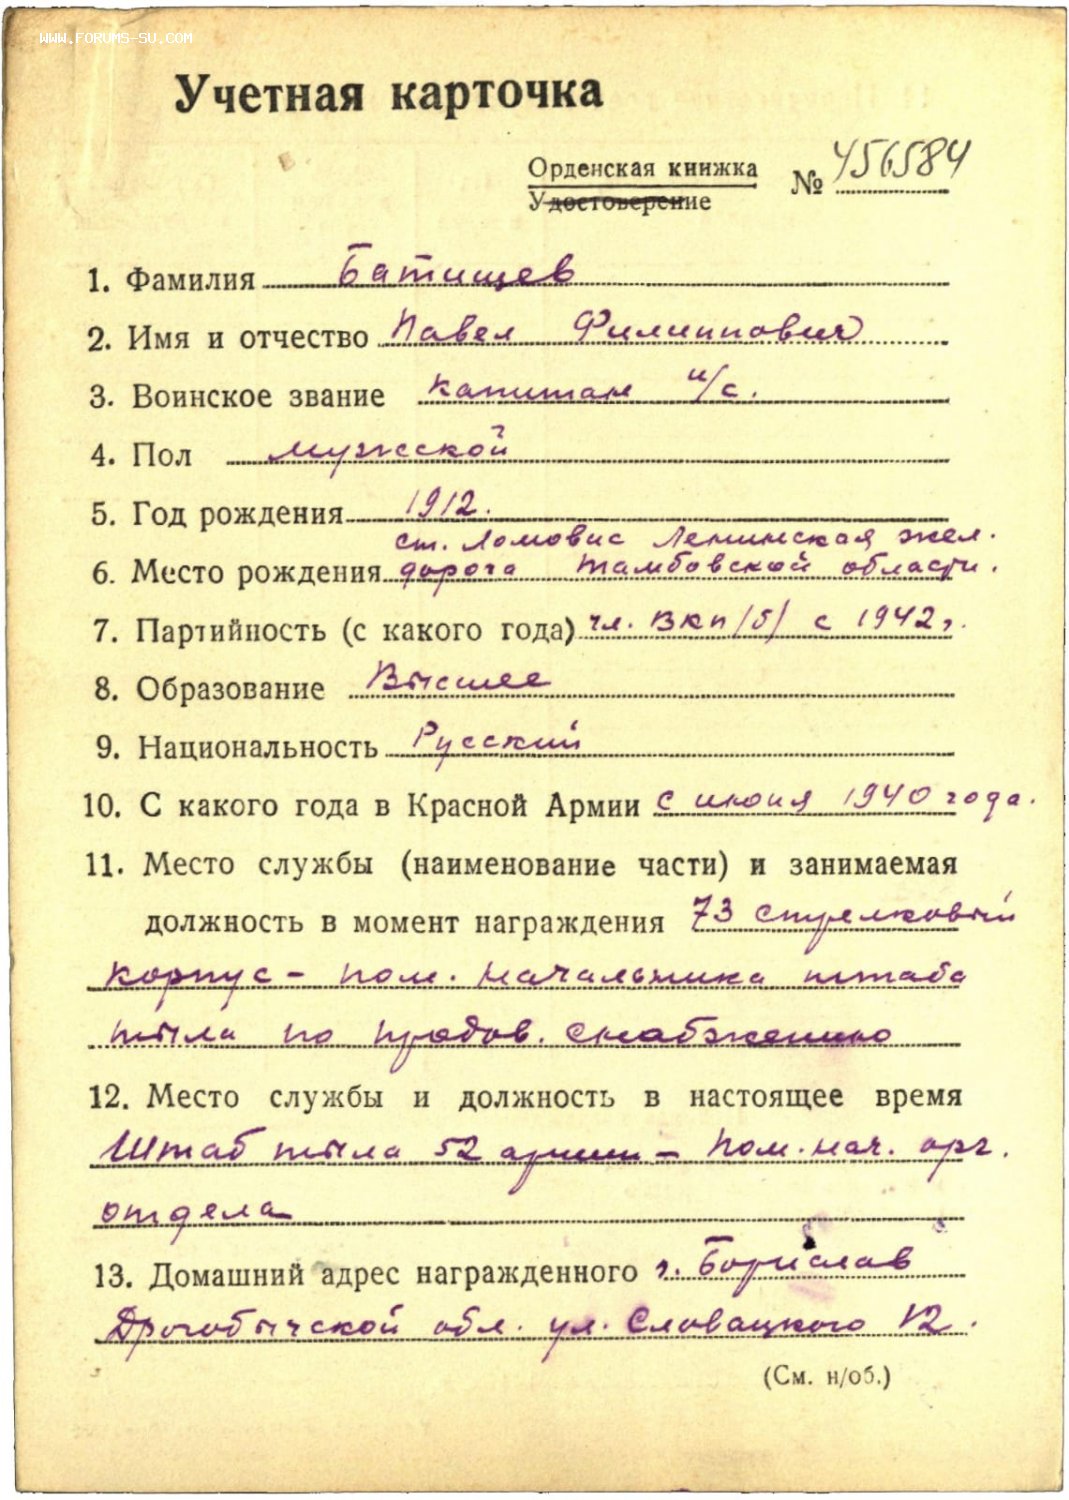 WWW.FORUMS-SU.COM
Учетная карточка
Орденская книжка
Удостоверение
№ 456584
1. Фамилия Батищев
2. Имя и отчество Павел Филиппович
3. Воинское звание капитан и/с.
4. Пол мужской
5. Год рождения 1912.
ст. Ломовис Ленинская жел.
6. Место рождения дорога Тамбовской области.
7. Партийность (с какого года) чл. ВКП/б/ с 1942г.
8. Образование Высшее
9. Национальность Русский
10. С какого года в Красной Армии с июня 1940 года.
11. Место службы (наименование части) и занимаемая
должность в момент награждения 73 стрелковый
корпус – пом. начальника штаба
тыла по продов. снабжению
12. Место службы и должность в настоящее время
Штаб тыла 52 армии – пом. нач. орг.
отдела
13. Домашний адрес награжденного г. Борислав
Дрогобычской обл. ул. Словацкого 12.
(См. н/об.)